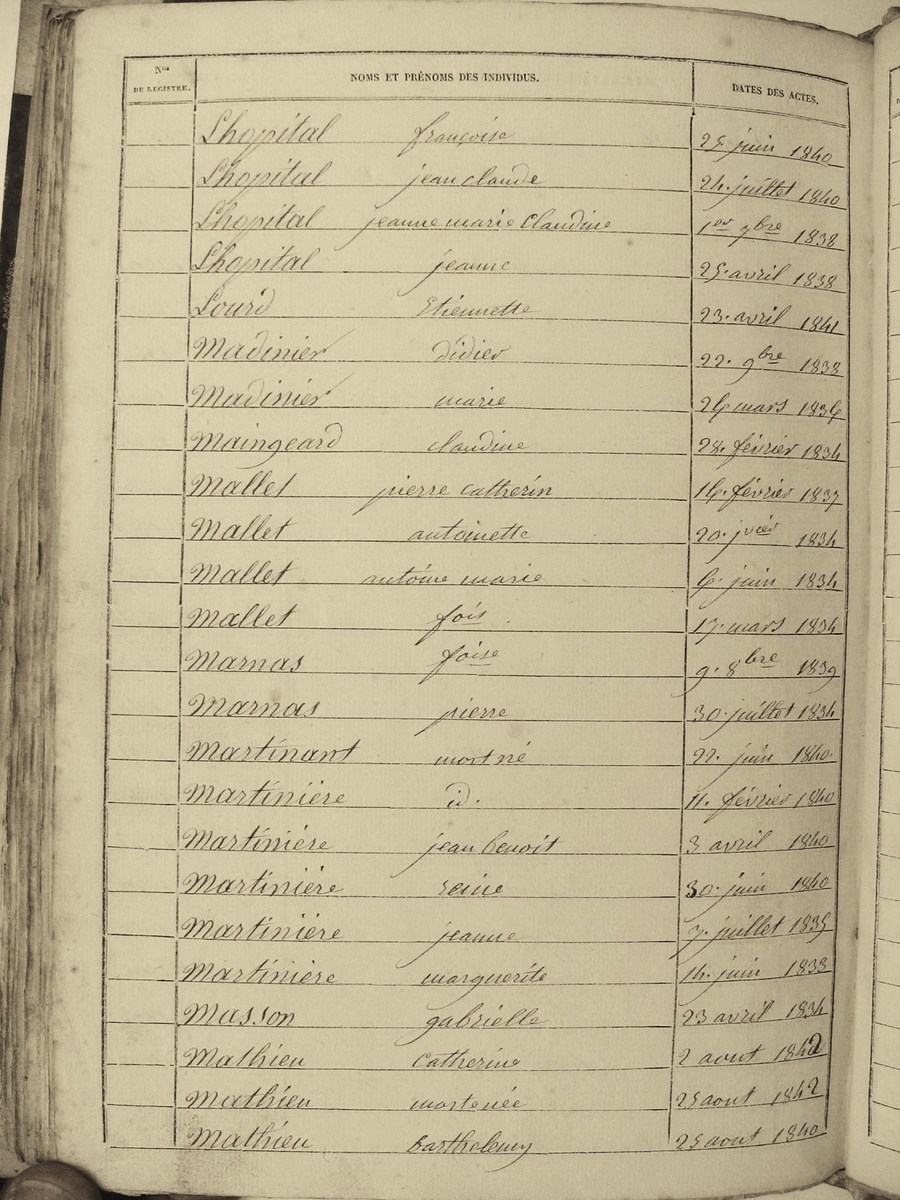 Nos DU REGISTRE. NOMS ET PRÉNOMS DES INDIVIDUS. DATES DES ACTES.
Lhopital françoise 25 juin 1840
Lhopital jean claude 24. juillet 1840
Lhopital jeanne marie Claudine 1er 9bre 1838
Lhopital jeanne 25. avril 1838
Lourd Etiennette 23. avril 1841
Madinier didier 22. 9bre 1838
Madinier marie 26 mars 1836
Maingeard claudine 28. février 1834
Mallet pierre catherin 16. février 1837
Mallet antoinette 20. jvier 1834
Mallet antoine marie 6. juin 1834
Mallet fois. 17. mars 1834
Marnas foise 9. 8bre 1839
Marnas pierre 30. juillet 1834
Martinant mort né 22. juin 1840.
Martiniére id. 11. février 1840
Martiniére jean benoit 3 avril 1840
Martiniére reine 30. juin 1840
Martiniére jeanne 7. juillet 1835
Martiniére marguerite 14. juin 1833
Masson gabrielle 23 avril 1834
Mathieu Catherine 2 aout 1842
Mathieu morte née 25 aout 1842
Mathieu Barthelemy 25 aout 1840